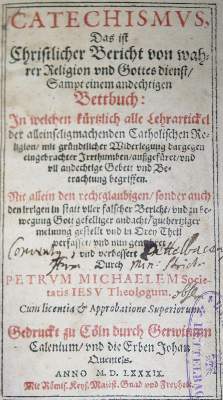 CATECHISMVS,
Das ist
Christlicher Bericht von wah-
rer Religion vnd Gottes dienst/
Sampt einem andechtigen
Bettbuch:
In welchen kürtzlich alle Lehrartickel
der alleinseligmachenden Catholischen Re-
ligion/ mit gründtlicher Widerlegung dargegen
eingebrachten Irrthumben/ außgefüret/ vnd
vil andechtige Gebett vnd Be-
trachtung begriffen.
Nit allein den rechtglaubigen/ sonder auch
den irrigen in statt viler falscher Bericht/ vnd zu be-
wegung Gott gefelliger andacht/ guthertziger
meinung gestelt vnd in Drey Theil
verfasset/ vnd nun gemehret
vnd verbessert
Durch
PETRVM MICHAELEM Socie-
tatis IESV Theologum.
Cum licentia & Approbatione Superiorum.
Gedruckt zu Cöln durch Gerwinum
Calenium/ vnd die Erben Johan
Quentels.
ANNO M. D. LXXXIX.
Mit Röm. Keys. Maiest. Gnad vnd Freyheit.